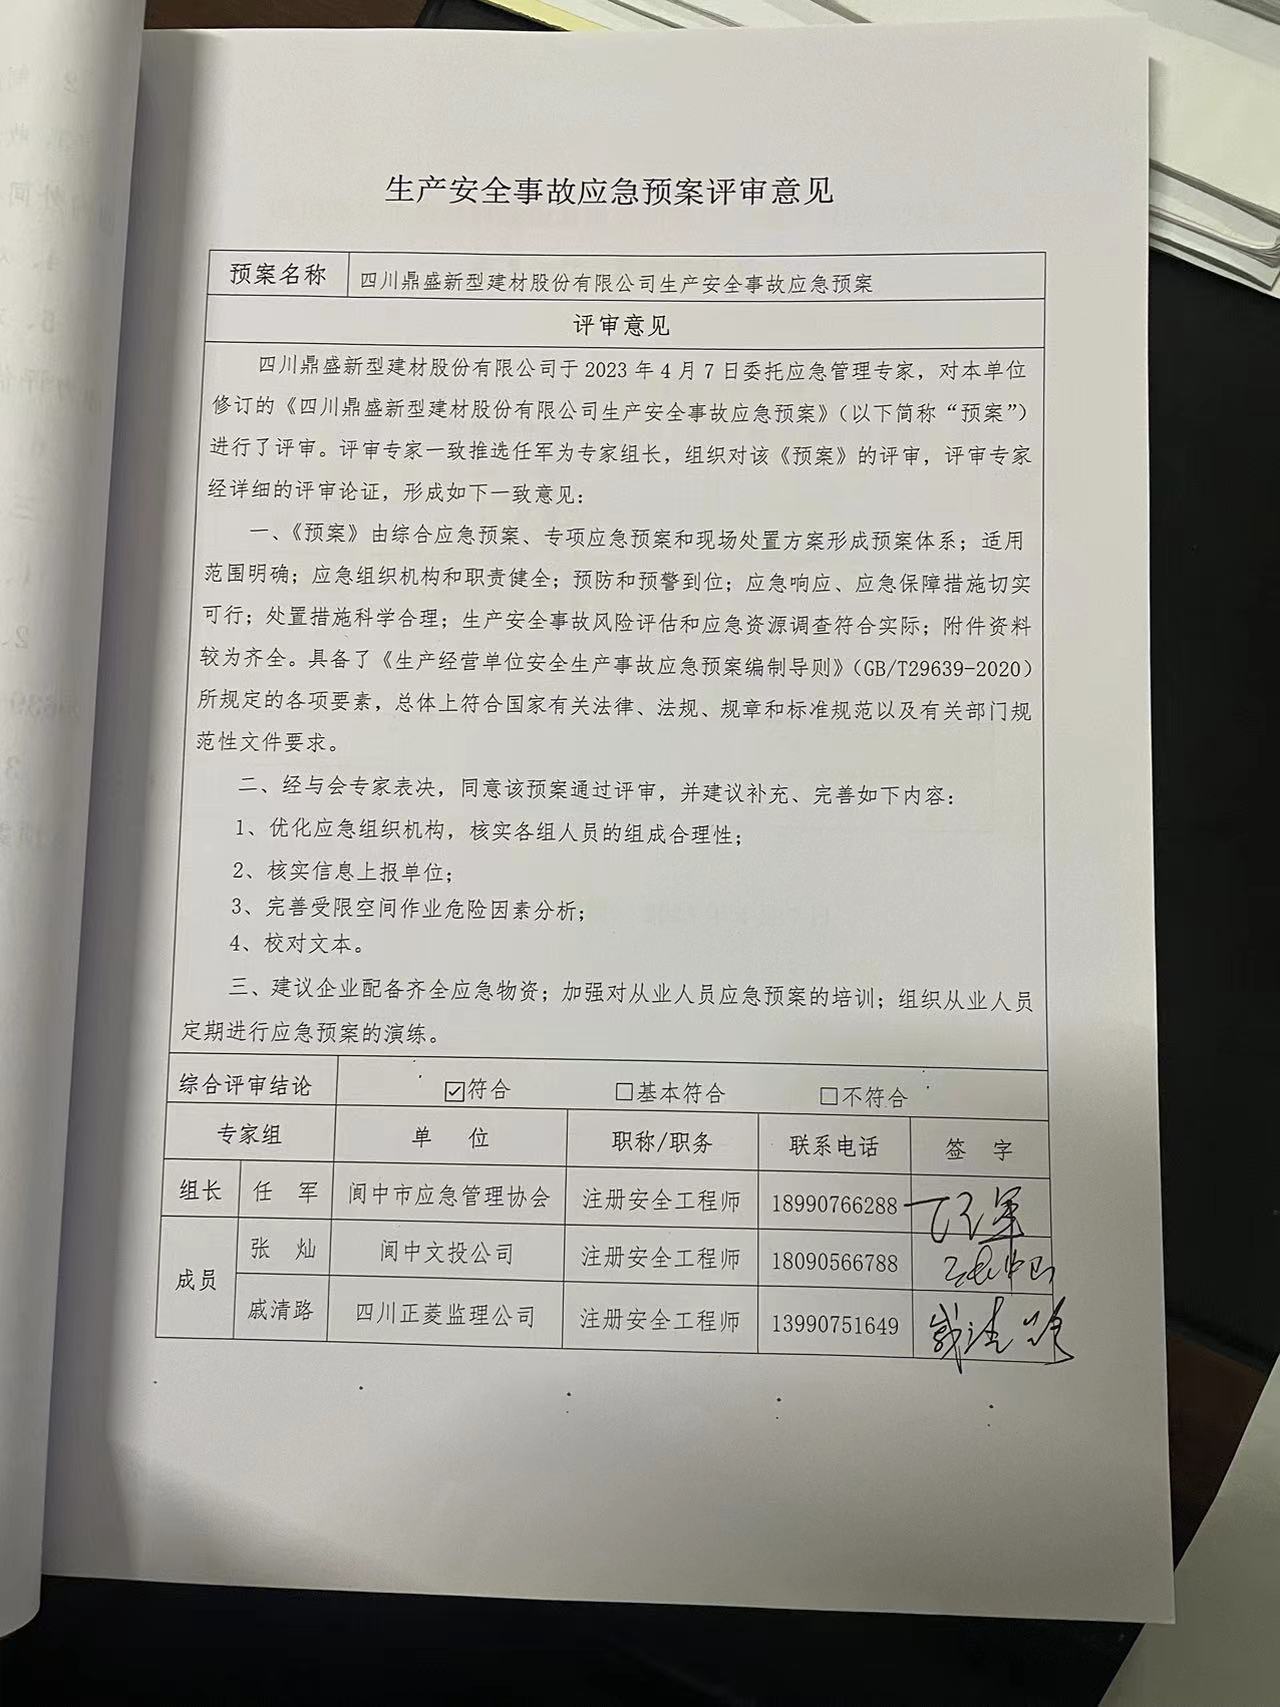 生产安全事故应急预案评审意见
预案名称 四川鼎盛新型建材股份有限公司生产安全事故应急预案
评审意见
四川鼎盛新型建材股份有限公司于 2023 年 4 月 7 日委托应急管理专家，对本单位
修订的《四川鼎盛新型建材股份有限公司生产安全事故应急预案》（以下简称“预案”）
进行了评审。评审专家一致推选任军为专家组长，组织对该《预案》的评审，评审专家
经详细的评审论证，形成如下一致意见：
一、《预案》由综合应急预案、专项应急预案和现场处置方案形成预案体系；适用
范围明确；应急组织机构和职责健全；预防和预警到位；应急响应、应急保障措施切实
可行；处置措施科学合理；生产安全事故风险评估和应急资源调查符合实际；附件资料
较为齐全。具备了《生产经营单位安全生产事故应急预案编制导则》（GB/T29639-2020）
所规定的各项要素，总体上符合国家有关法律、法规、规章和标准规范以及有关部门规
范性文件要求。
二、经与会专家表决，同意该预案通过评审，并建议补充、完善如下内容：
1、优化应急组织机构，核实各组人员的组成合理性；
2、核实信息上报单位；
3、完善受限空间作业危险因素分析；
4、校对文本。
三、建议企业配备齐全应急物资；加强对从业人员应急预案的培训；组织从业人员
定期进行应急预案的演练。
综合评审结论 ☑符合 □基本符合 □不符合
专家组 单 位 职称/职务 联系电话 签 字
组长 任 军 阆中市应急管理协会 注册安全工程师 18990766288 任军
成员 张 灿 阆中文投公司 注册安全工程师 18090566788
戚清路 四川正菱监理公司 注册安全工程师 13990751649 戚清路